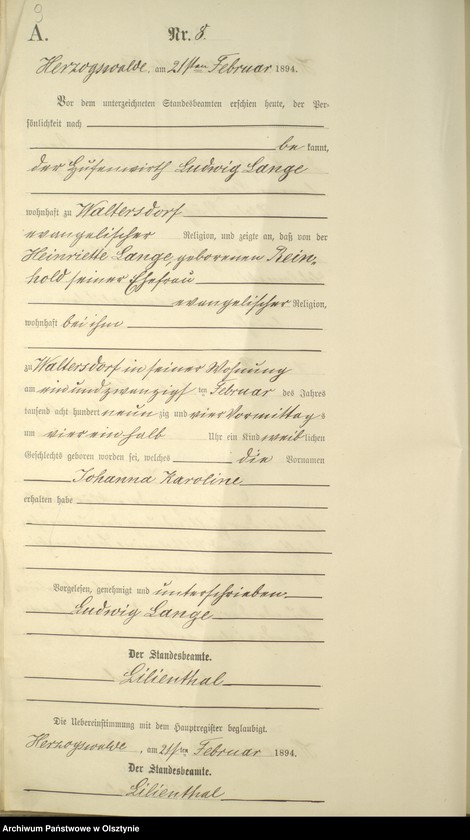 9
A.
Nr. 8.
Herzogswalde, am 21sten Februar 1894.
Vor dem unterzeichneten Standesbeamten erschien heute, der Per-
sönlichkeit nach
be kannt,
der Hufenwirth Ludwig Lange
wohnhaft zu Waltersdorf
evangelischer Religion, und zeigte an, daß von der
Heinriette Lange, geborenen Rein-
hold seiner Ehefrau
evangelischer Religion,
wohnhaft bei ihm
zu Waltersdorf in seiner Wohnung
am einundzwanzigsten Februar des Jahres
tausend acht hundert neunzig und vier Vormittags
um vier ein halb Uhr ein Kind weiblichen
Geschlechts geboren worden sei, welches die Vornamen
Johanna Karoline
erhalten habe
Vorgelesen, genehmigt und unterschrieben.
Ludwig Lange
Der Standesbeamte.
Lilienthal
Die Uebereinstimmung mit dem Hauptregister beglaubigt.
Herzogswalde, am 21sten Februar 1894.
Der Standesbeamte.
Lilienthal
Archiwum Państwowe w Olsztynie